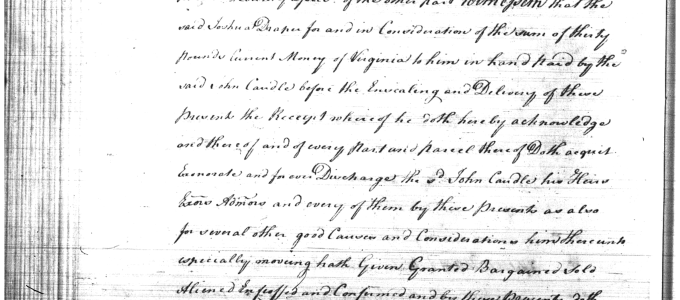 of the other part Witnesseth that the
said Joshua Draper for and in Consideration of the sum of thirty
pounds Current Money of Virginia to him in hand paid by the
said John Caudle before the Ensealing and Delivery of these
Present the Receipt where of he doth hereby acknowledge
and there of and of every part and parcel there of Doth acquit
Exonerate and for ever Discharge the sd John Caudle his Heirs
Exors Admors and every of them by these Presents as also
for several other good Causes and Considerations him thereunto
especially moving hath Given Granted Bargained Sold
Aliened Enfeoffed and Confirmed and by these Presents doth